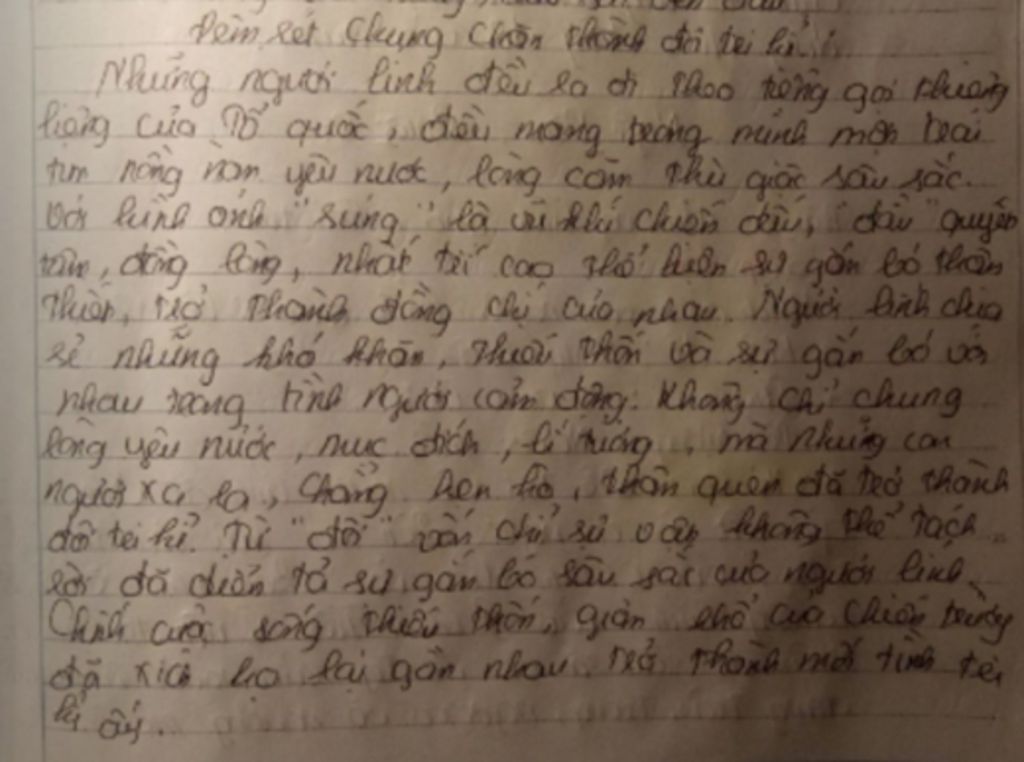 Đêm rét Chung Chăn thành đôi tri kỉ !
Những người lính đều ra đi theo tiếng gọi thiêng
liêng của Tổ quốc, đều mang trong mình một trái
tim nồng nàn yêu nước, lòng căm thù giặc sâu sắc.
Với hình ảnh "súng" là vũ khí chiến đấu, "đầu" quyết
tâm, đồng lòng, nhất trí cao thể hiện sự gắn bó thân
thiết, trở thành đồng chí của nhau. Người lính chia
sẻ những khó khăn, thiếu thốn và sự gắn bó với
nhau trong tình người cảm động. Không chỉ chung
lòng yêu nước, mục đích, lí tưởng, mà những con
người xa lạ, chẳng hẹn hò, thân quen đã trở thành
đôi tri kỉ. Từ "đôi" vốn chỉ sự vật không thể tách
rời đã diễn tả sự gắn bó sâu sắc của người lính.
Chính cuộc sống thiếu thốn, gian khổ của chiến trường
đã xích họ lại gần nhau. trở thành mối tình tri
kỉ ấy.